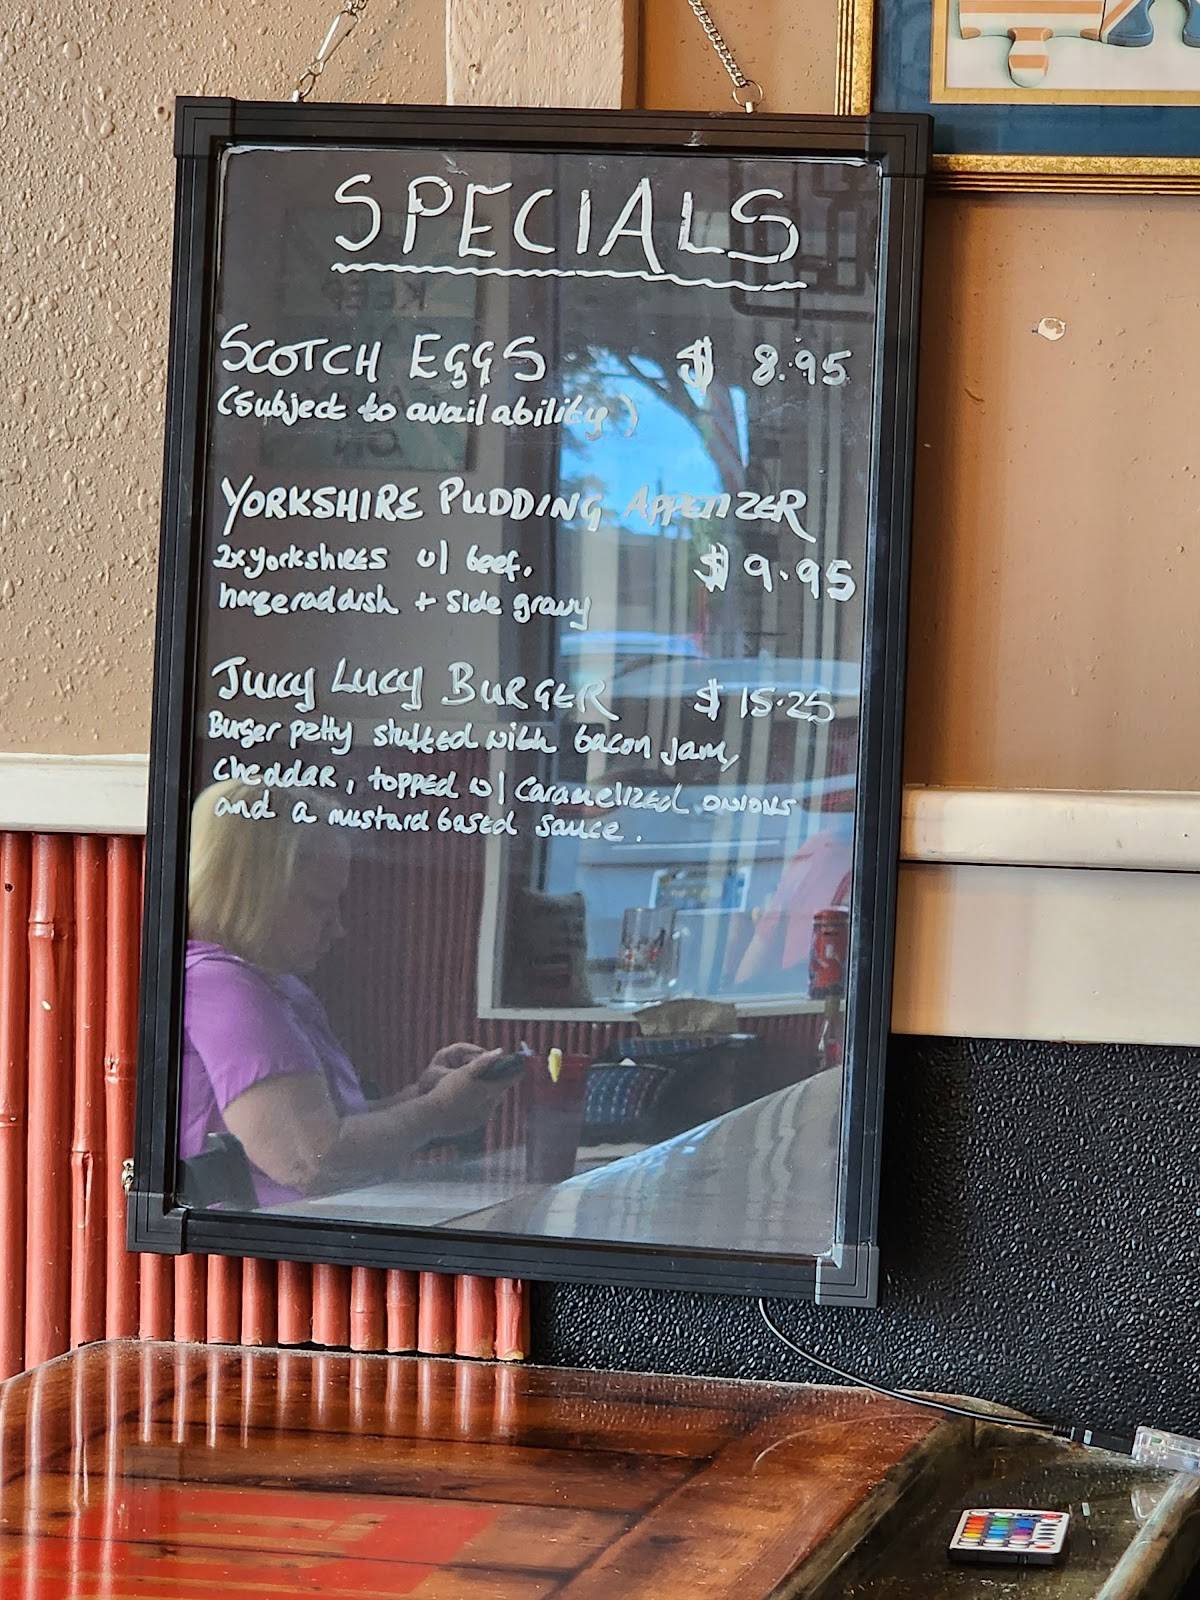 SPECIALS
SCOTCH EGGS $ 8.95
(Subject to availability)
YORKSHIRE PUDDING APPETIZER
2x yorkshires w/ beef, $ 9.95
horseraddish + side gravy
Juicy Lucy BURGER $ 15.25
Burger patty stuffed with bacon jam,
cheddar, topped w/ caramelized onions
and a mustard based sauce.